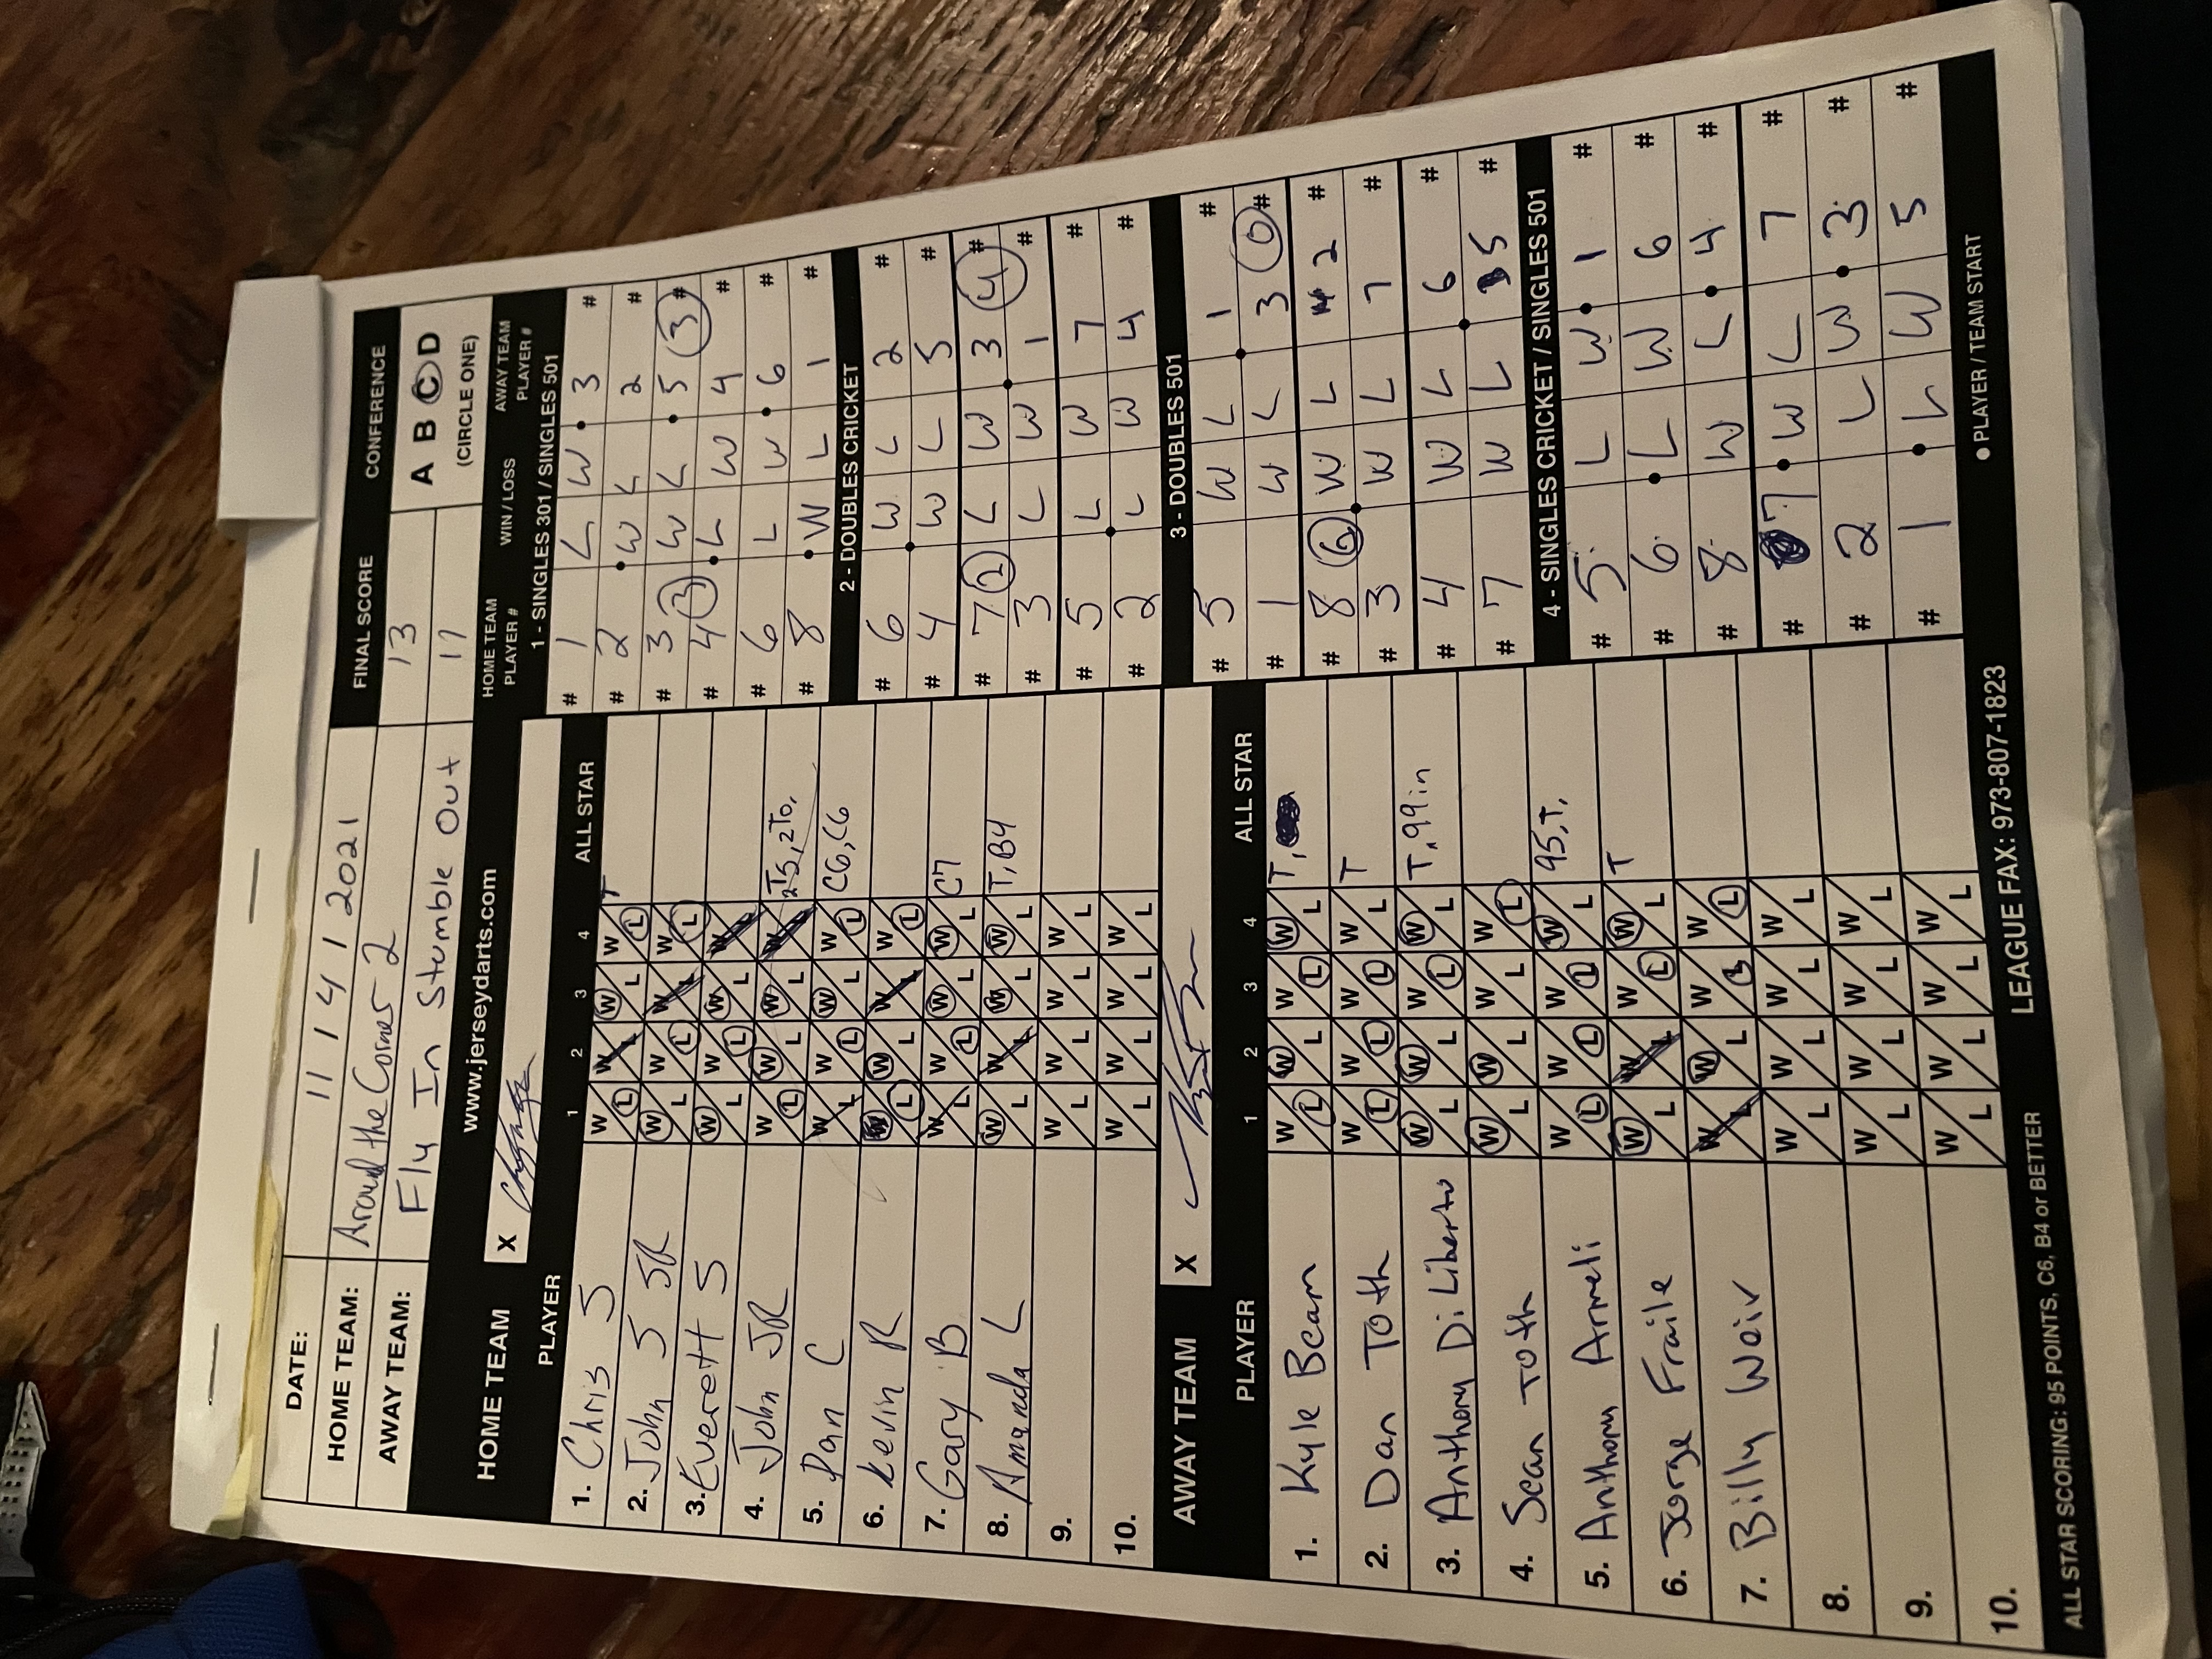 DATE: 11 / 4 / 2021 FINAL SCORE CONFERENCE
HOME TEAM: Around the Corner 2 13 A B C D
AWAY TEAM: Fly In Stumble Out 11 (CIRCLE ONE)
www.jerseydarts.com
HOME TEAM X
PLAYER 1 2 3 4 ALL STAR
1. Chris S W L W L W L W L T
2. John S SR W L W L W L W L
3. Everett S W L W L W L W L
4. John JR W L W L W L W L
5. Dan C W L W L W L W L C6, C6
6. Kevin R W L W L W L W L
7. Gary B W L W L W L W L C7
8. Amanda L W L W L W L W L T, B4
9. W L W L W L W L
10. W L W L W L W L
AWAY TEAM X
PLAYER 1 2 3 4 ALL STAR
1. Kyle Beam W L W L W L W L T,
2. Dan Toth W L W L W L W L T
3. Anthony DiLiberto W L W L W L W L T, 99 in
4. Sean Toth W L W L W L W L
5. Anthony Armeli W L W L W L W L 95, T,
6. Jorge Fraile W L W L W L W L T
7. Billy Weir W L W L W L W L
8. W L W L W L W L
9. W L W L W L W L
10.
HOME TEAM PLAYER # WIN / LOSS AWAY TEAM PLAYER #
1 - SINGLES 301 / SINGLES 501
# 1 L W 3 #
# 2 W L 2 #
# 3 W L 5 3 #
# 4 3 L W 4 #
# 6 L W 6 #
# 8 W L 1 #
2 - DOUBLES CRICKET
# 6 W L 2 #
# 4 W L 5 #
# 7 2 L W 3 4 #
# 3 L W 1 #
# 5 L W 7 #
# 2 L W 4 #
3 - DOUBLES 501
# 5 W L 1 #
# 1 W L 3 0 #
# 8 6 W L 2 #
# 3 W L 7 #
# 4 W L 6 #
# 7 W L 5 #
4 - SINGLES CRICKET / SINGLES 501
# 5 L W 1 #
# 6 L W 6 #
# 8 W L 4 #
# 7 W L 7 #
# 2 L W 3 #
# 1 L W 5 #
● PLAYER / TEAM START
ALL STAR SCORING: 95 POINTS, C6, B4 or BETTER LEAGUE FAX: 973-807-1823